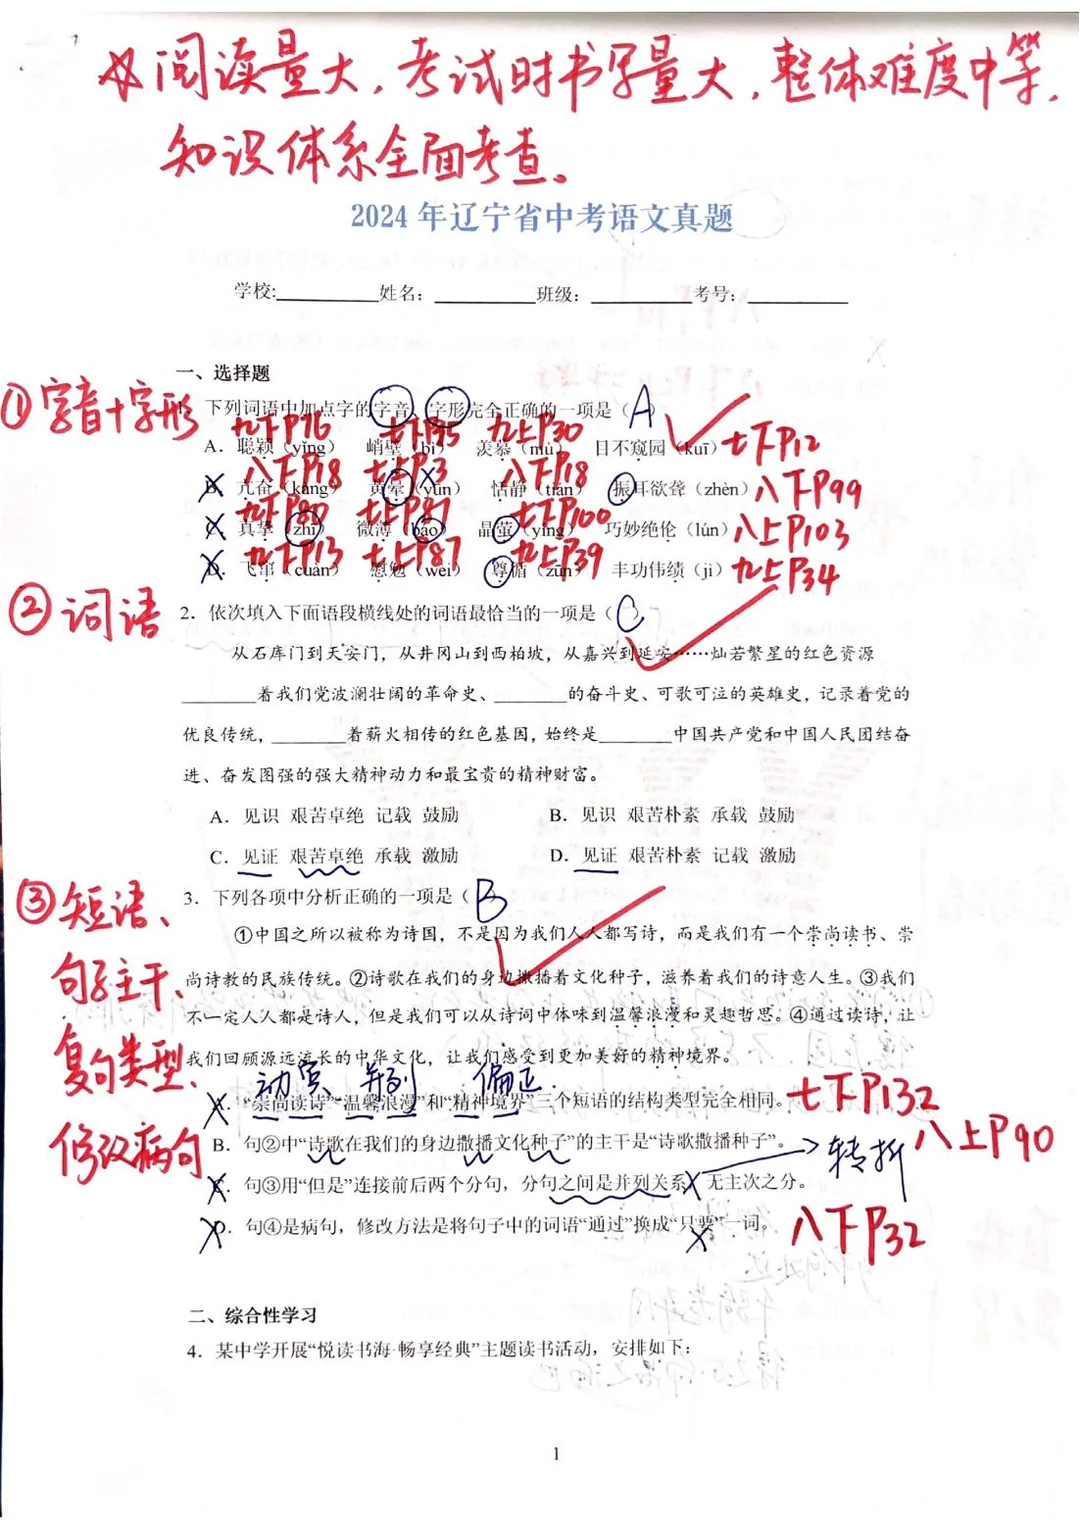 ☆阅读量大，考试时书写量大，整体难度中等，
知识体系全面考查。
2024年辽宁省中考语文真题
学校:__________姓名：__________班级：__________考号：__________
一、选择题
①字音+字形
1．下列词语中加点字的字音、字形完全正确的一项是（A）
九下P76 七下P35 九上P30
A．聪颖（yǐng） 峭壁（bì） 羡慕（mù） 目不窥园（kuī） 七下P12
八下P18 七上P3 八下P18
B．亢奋（kàng） 黄晕（yùn） 恬静（tián） 振耳欲聋（zhèn） 八下P99
七上P81 七下P100
C．真挚（zhì） 微薄（báo） 晶萤（yíng） 巧妙绝伦（lún） 八上P103
九下P13 七上P87 九上P39
D．飞窜（cuàn） 慰勉（wèi） 尊循（zūn） 丰功伟绩（jì） 九上P34
②词语
2．依次填入下面语段横线处的词语最恰当的一项是（C）
从石库门到天安门，从井冈山到西柏坡，从嘉兴到延安……灿若繁星的红色资源
________着我们党波澜壮阔的革命史、________的奋斗史、可歌可泣的英雄史，记录着党的
优良传统，________着薪火相传的红色基因，始终是________中国共产党和中国人民团结奋
进、奋发图强的强大精神动力和最宝贵的精神财富。
A．见识 艰苦卓绝 记载 鼓励 B．见识 艰苦朴素 承载 鼓励
C．见证 艰苦卓绝 承载 激励 D．见证 艰苦朴素 记载 激励
③短语、
句子主干、
复句类型、
修改病句
3．下列各项中分析正确的一项是（B）
①中国之所以被称为诗国，不是因为我们人人都写诗，而是我们有一个崇尚读书、崇
尚诗教的民族传统。②诗歌在我们的身边撒播着文化种子，滋养着我们的诗意人生。③我们
不一定人人都是诗人，但是我们可以从诗词中体味到温馨浪漫和灵趣哲思。④通过读诗，让
我们回顾源远流长的中华文化，让我们感受到更加美好的精神境界。
动宾 并列 偏正
A．“崇尚读诗”“温馨浪漫”和“精神境界”三个短语的结构类型完全相同。 七下P132
B．句②中“诗歌在我们的身边撒播文化种子”的主干是“诗歌撒播种子”。 八上P90
C．句③用“但是”连接前后两个分句，分句之间是并列关系，无主次之分。 转折
D．句④是病句，修改方法是将句子中的词语“通过”换成“只要”一词。 八下P32
二、综合性学习
4．某中学开展“悦读书海·畅享经典”主题读书活动，安排如下：
1